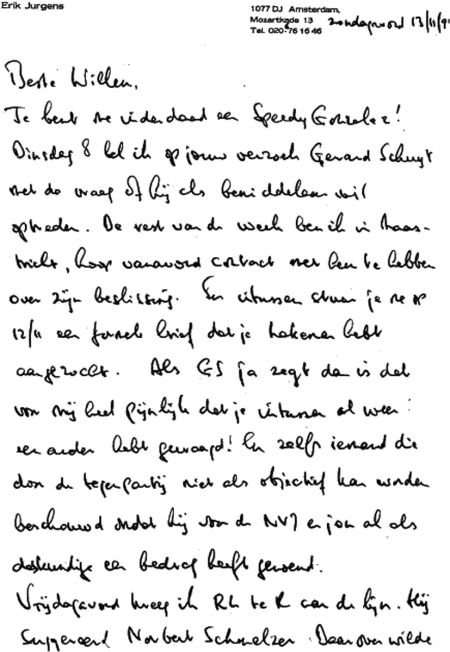 Erik Jurgens
1077 DJ Amsterdam,
Mozartkade 13
Tel. 020-76 16 46
zondagavond 13/11/9
Beste Willem,
Je bent me inderdaad een Speedy Gonzalez!
Dinsdag 8 bel ik op jouw verzoek Gerard Schuyt
met de vraag of hij als bemiddelaar wil
optreden. De rest van de week ben ik in Maas-
tricht, hoop vanavond contact met hem te hebben
over zijn beslissing. En intussen stuur je me op
12/11 een formele brief dat je hebt
aangezocht. Als GS ja zegt dan is dat
voor mij heel pijnlijk dat je intussen al weer
een ander hebt gevraagd! En zelfs iemand die
door de tegenpartij niet als objectief kan worden
beschouwd omdat hij voor de NVJ en jou al als
deskundige een bedrag heeft genoemd.
Vrijdagavond kreeg ik aan de lijn. Hij
suggereerd Norbert Schmelzer. Daarover wilde